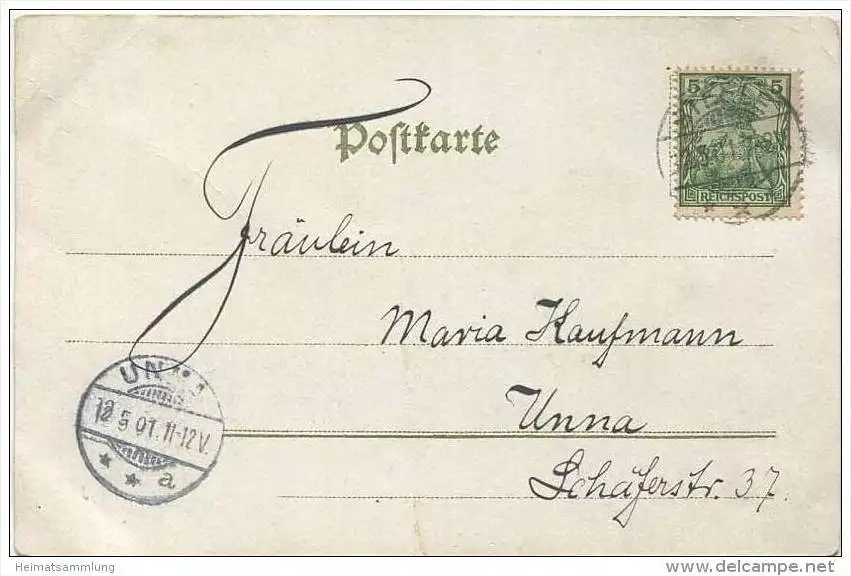 Postkarte
5 5
REICHSPOST
Fräulein
Maria Kaufmann
Unna
Schäferstr. 37.
UNNA
12 5 01. 11-12 V.
* * a
Heimatsammlung
www.delcampe.net